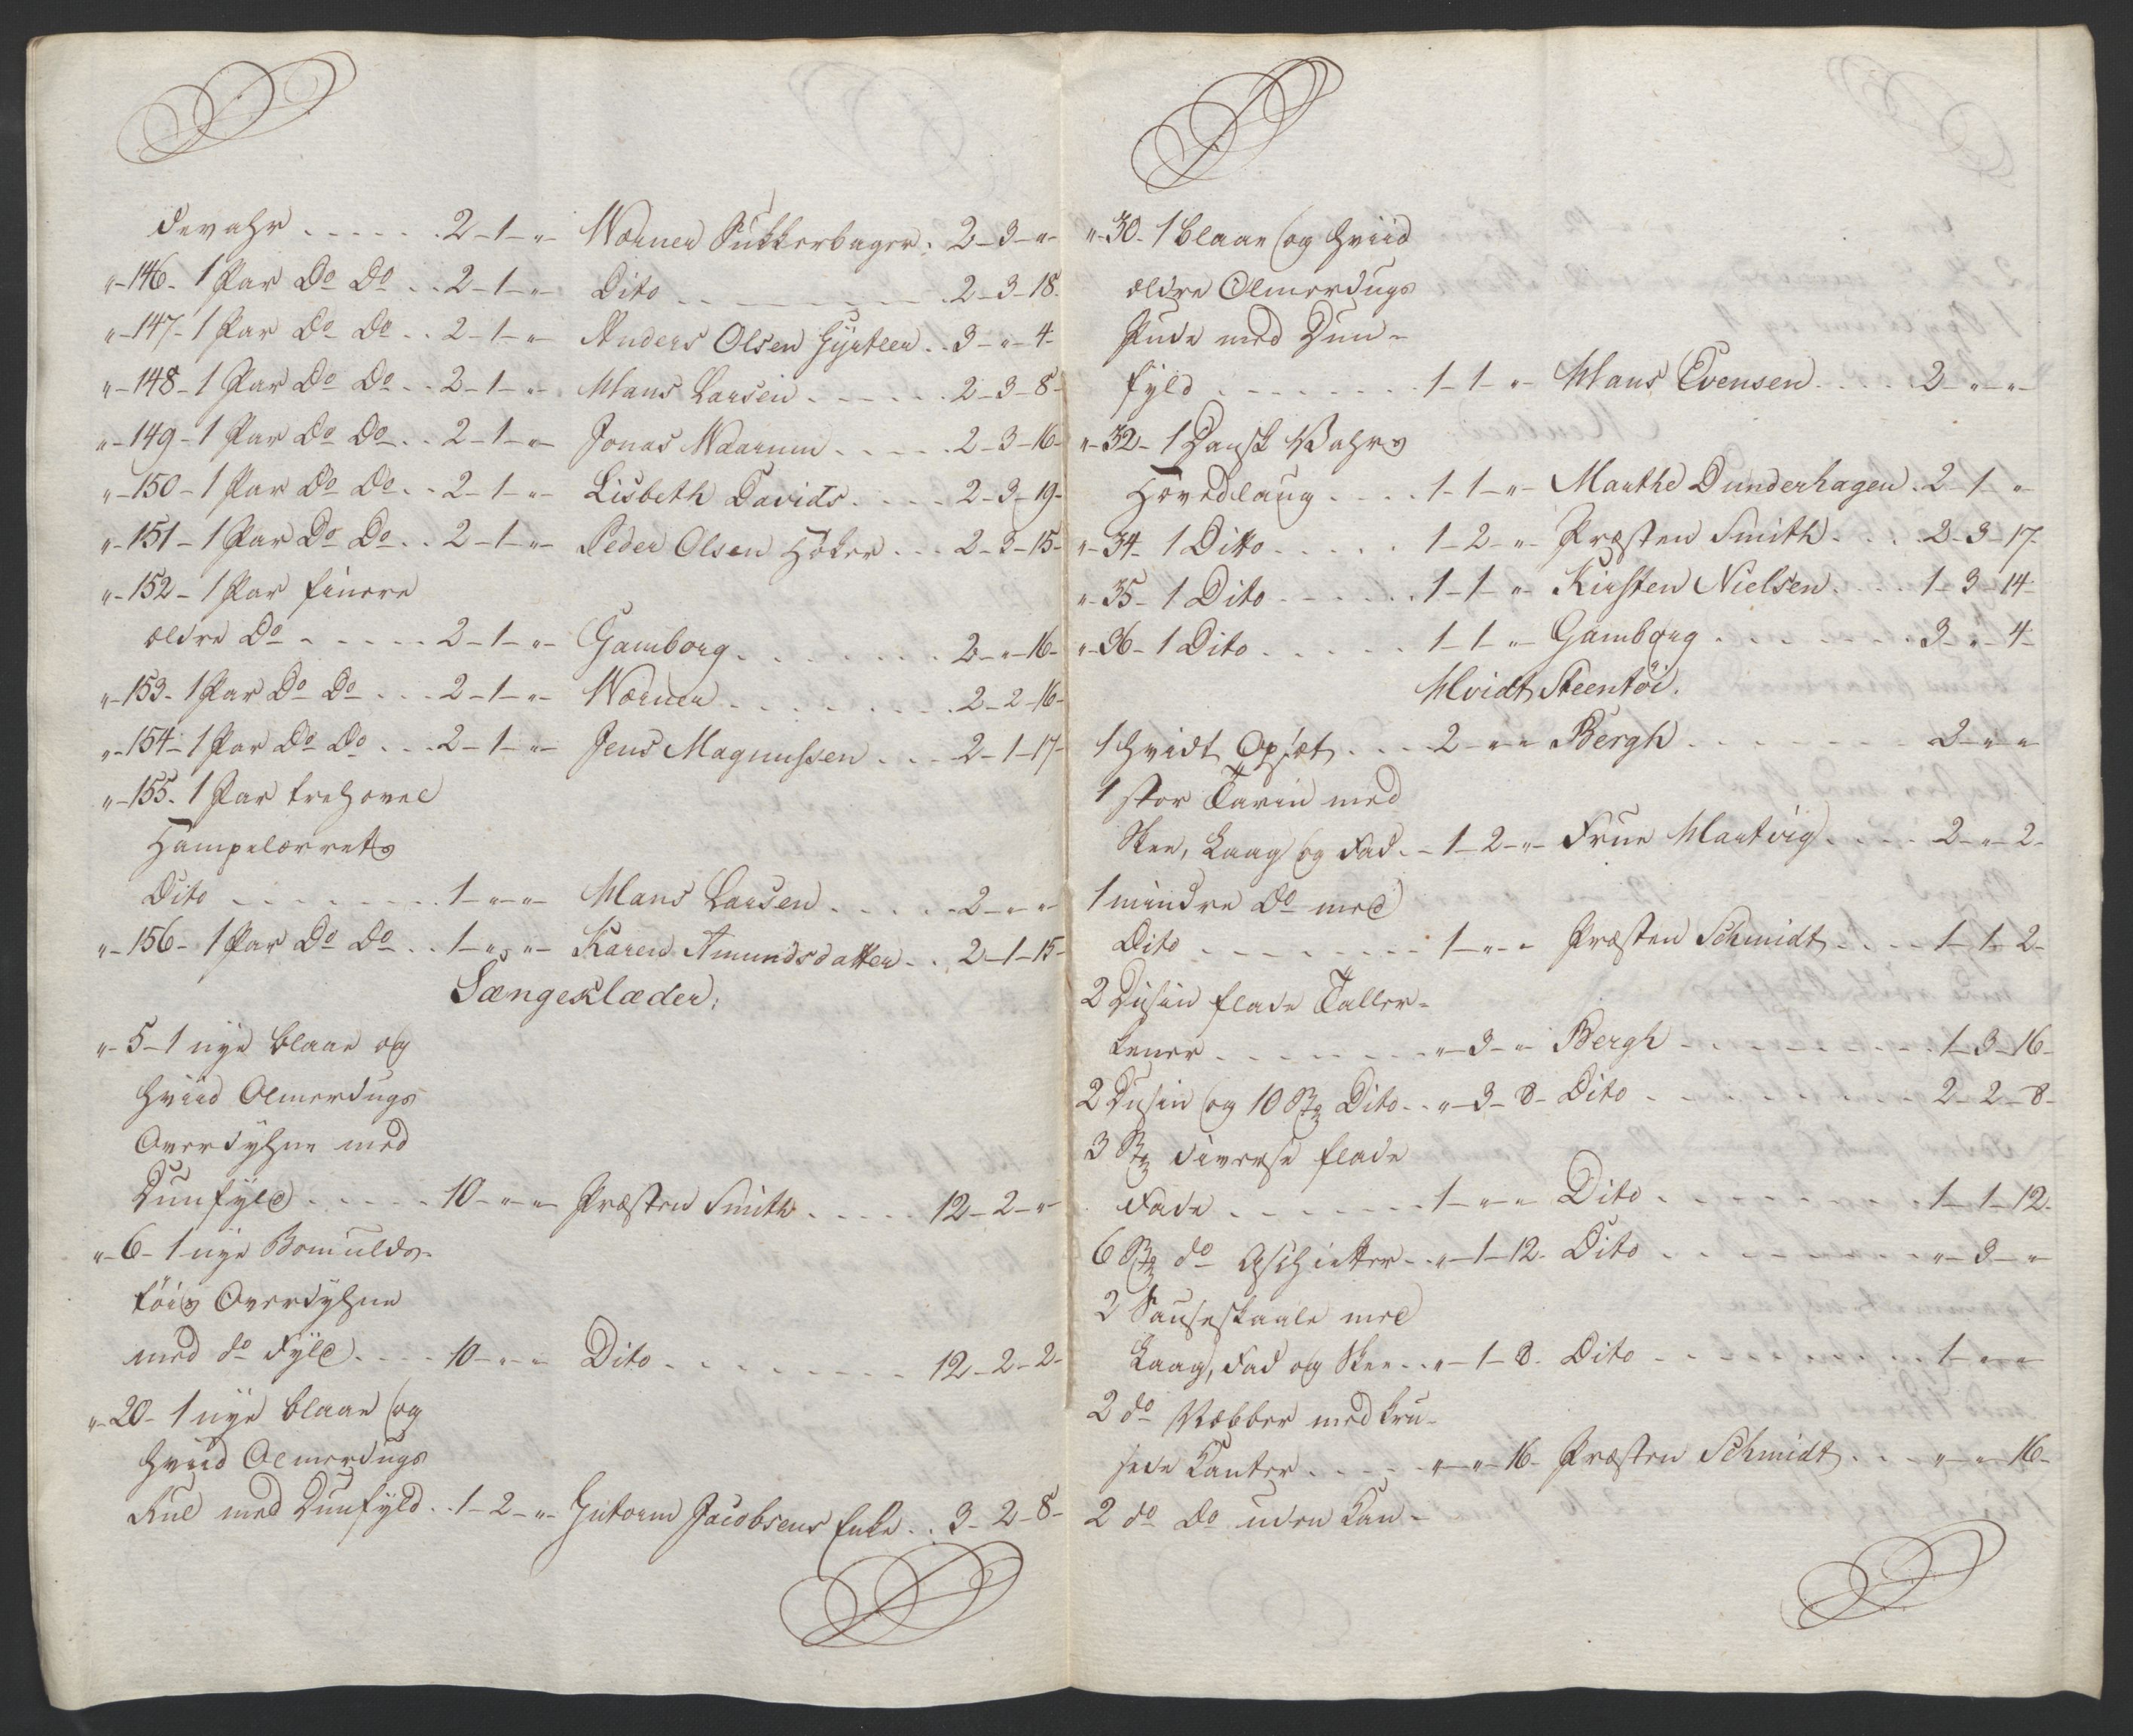 devahr . . . . . . 2 - 1 - " - Wærner Sukkerbager . 2 - 3 - " -
" - 146 - 1 Par Do Do . . 2 - 1 - " - Dito . . . . . 2 - 3 - 18.
" - 147 - 1 Par Do Do . . 2 - 1 - " - Anders Olsen Gjirtler . . 3 - " - 4 -
" - 148 - 1 Par Do Do . . 2 - 1 - " - Hans Larsen . . . . . 2 - 3 - 8 -
" - 149 - 1 Par Do Do . . 2 - 1 - " - Jonas Waarum . . . . . 2 - 3 - 16 -
" - 150 - 1 Par Do Do . . 2 - 1 - " - Lisbeth Davids . . . . 2 - 3 - 19 -
" - 151 - 1 Par Do Do . . 2 - 1 - " - Peder Olsen Höker . . . 2 - 3 - 15 -
" - 152 - 1 Par finere
ældre Do . . . . . 2 - 1 - " - Gamborg . . . . . 2 - " - 16 -
" - 153 - 1 Par Do Do . . . 2 - 1 - " - Wærner . . . . . 2 - 2 - 16 -
" - 154 - 1 Par Do Do . . . 2 - 1 - " - Jens Magnussen . . . 2 - 1 - 17 -
" - 155 - 1 Par trehovel
Hampelærrets
Dito . . . . . 1 - " - " - Hans Larsen . . . . . 2 - " - "
" - 156 - 1 Par Do Do . . 1 - " - " - Karen Amundsdatter . . 2 - 1 - 15 -
Sængeklæder:
" - 5 - 1 nye blaae og
hviid Olmerdugs
Overdyhne med
Duunfyld . . . . . 10 - " - " - Præsten Smith . . . . . 12 - 2 - " -
" - 6 - 1 nye Bomulds-
töis Overdyhne
med do Fyld . . . . 10 - " - " Dito . . . . . 12 - 2 - 2 -
" - 20 - 1 nye blaae og
hviid Olmerdugs
Kul med Duunfyld . . 1 - 2 - " - Gutorm Jacobsens Enke . . 3 - 2 - 8 -
" - 30 - 1 blaae og hviid
ældre Olmerdugs
Pude med Duun-
fyld . . . . . 1 - 1 - " - Hans Evensen . . . . 2 - " - " -
" - 32 - 1 Dansk Vahrs
Hovedlaug . . . . 1 - 1 - " - Marthe Dunderhagen . 2 - 1 - "
" - 34 - 1 Ditto . . . . . 1 - 2 - " - Præsten Smith . . . . 2 - 3 - 17 -
" - 35 - 1 Dito . . . . . 1 - 1 - " - Kirsten Nielsen . . . . 1 - 3 - 14 -
" - 36 - 1 Dito . . . . . 1 - 1 - " - Gamborg . . . . . 3 - " - 4 -
Hvidt Steentöi.
1 hvidt Opsæt . . . . 2 - " - " Bergh . . . . . 3 - " - "
1 stor Tarin med
Skee, Laag og Fad . . 1 - 2 - " - Frue Hartvig . . . . 2 - " - 2 -
1 mindre Do med
Dito . . . . . 1 - " - " Præsten Schmidt . . . . 1 - 1 - 2 -
2 Dusin flade Taller-
kener . . . . . " - 3 - " Bergh . . . . . 1 - 3 - 16 -
2 Dusin og 10 Stk Dito . . " - 3 - 8 - Dito . . . . . 2 - 2 - 8 -
3 Stk diverse flade
Fade . . . . . 1 - " - " Dito . . . . . 1 - 1 - 12 -
6 Stk do Aschietter . . " - 1 - 12 - Dito . . . . . " - 3 - "
2 Sauseskaale med
Laag, Fad og Skee . . " - 1 - 8 - Dito . . . . . 1 - " - "
2 do Næbber med kru-
sede Kanter . . . . . " - " - 16 - Præsten Schmidt . . . " - " - 16 -
2 do Do uden Kan-